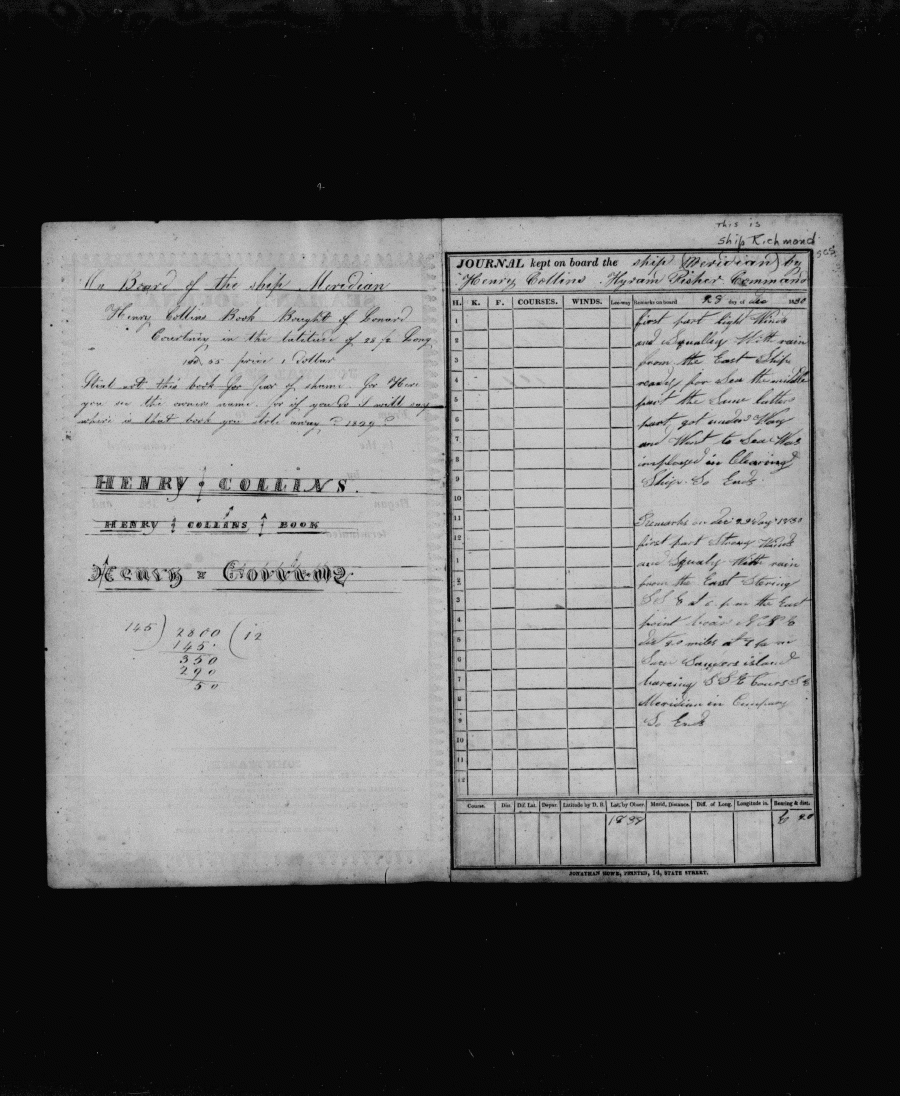 On Board of the ship Meridian
Henry Collins Book Bought of Lonard
Courtney in the latitude of 28 1/2 Long
55 price 1 Dollar
Steal not this book for fear of shame. for Here
you see the owners name. for if you do it will say
where is that book you stole away 1829
HENRY COLLINS.
HENRY COLLINS BOOK
Henry Collins
145 ) 2800 ( 12
145
350
290
50
This is
Ship Richmond
JOURNAL kept on board the ship (Meridian) by
Henry Collins Hyram Fisher Command
H. K. F. COURSES. WINDS. Lee-way Remarks on board 28 day of dec 1830
1
2
3
4
5
6
7
8
9
10
11
12
1
2
3
4
5
6
7
8
9
10
11
12
first part light Winds
and Squally With rain
from the East Ship
ready for Sea the middle
part the Same latter
part got under Way
and Went to Sea Was
imployed in Clearing
Ship So Ends
Remarks on dec 29 day 1830
first part Strong Winds
and Squaly With rain
from the East Stering
the East
point
miles at
Saw Sanders island
bareing S S E Cours S E
Meridian in Company
So Ends
Course. Dis. Dif. Lat. Depar. Latitude by D. R. Lat. by Obser. Merid. Distance. Diff. of Long. Longitude in. Bearing & dist.
JONATHAN HOWE, PRINTER, 14, STATE STREET.